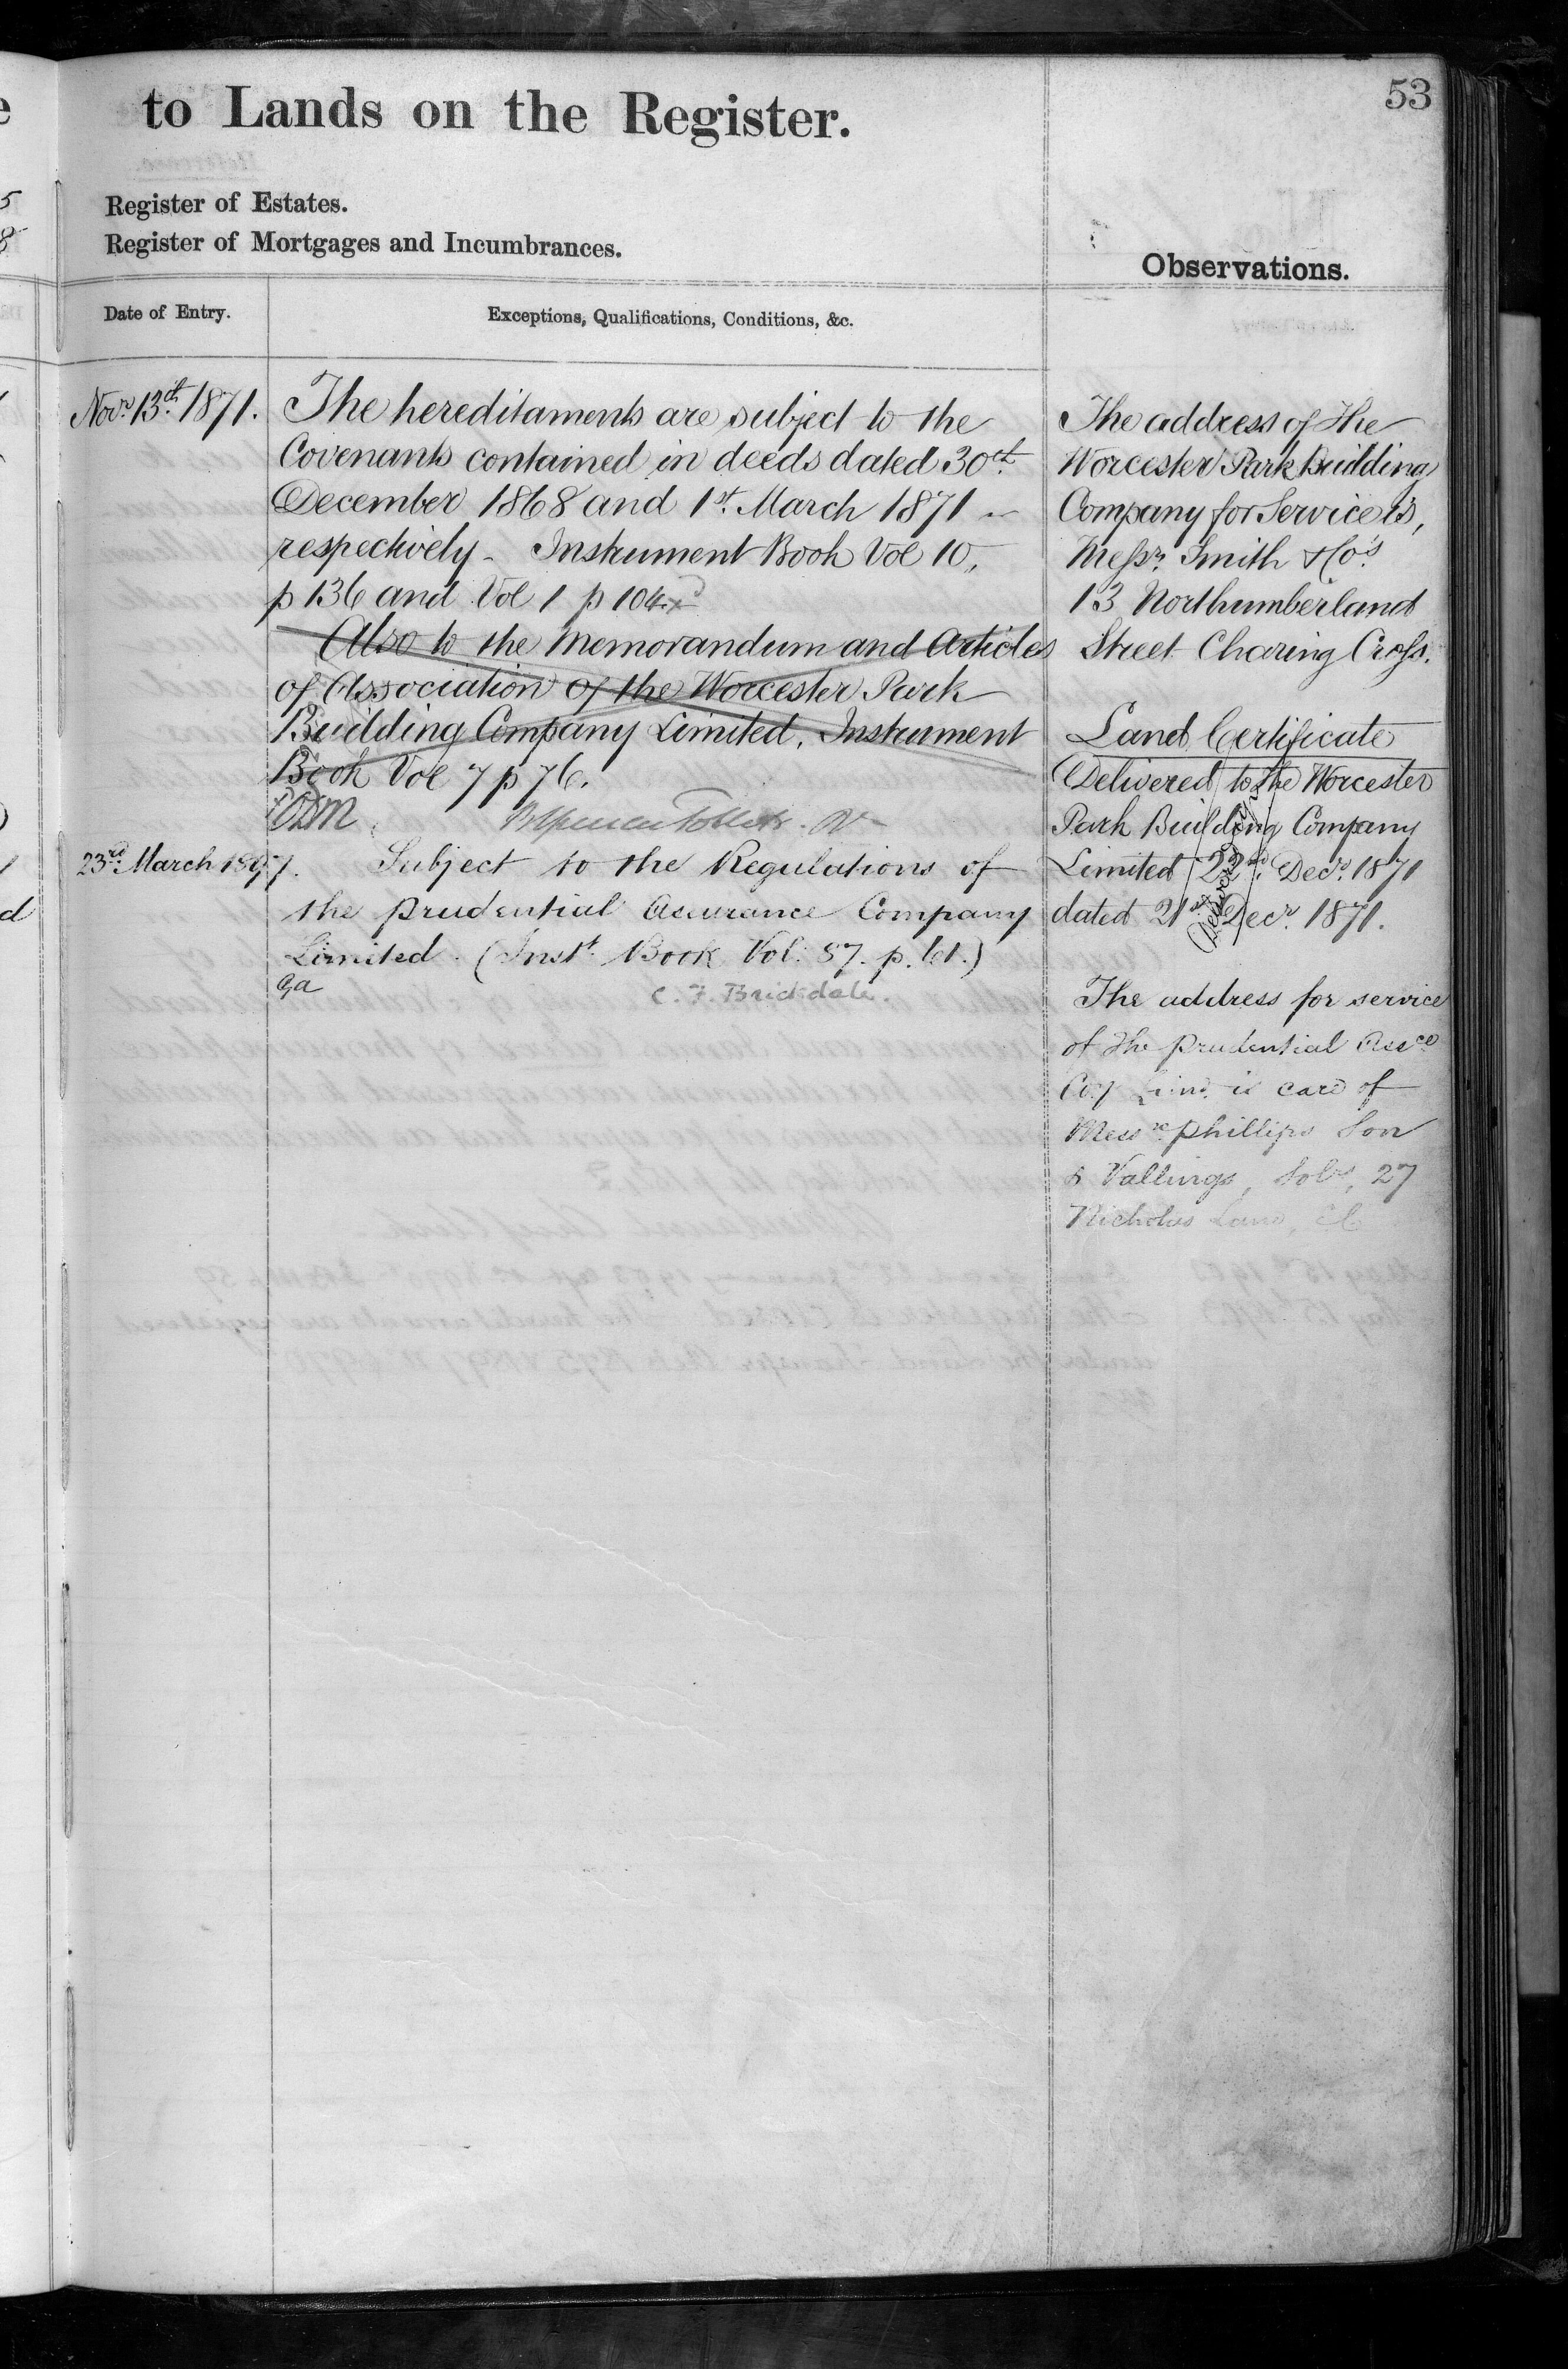 53
to Lands on the Register.
Register of Estates.
Register of Mortgages and Incumbrances.
Observations.
Date of Entry.
Exceptions, Qualifications, Conditions, &c.
Novr. 13th. 1871.
The hereditaments are subject to the
Covenants contained in deeds dated 30th.
December 1868 and 1st. March 1871
respectively - Instrument Book Vol 10,
p 136 and Vol 1 p 104.
Also to the Memorandum and Articles
of Association of the Worcester Park
Building Company Limited. Instrument
Book Vol 7 p 76.
23rd. March 1897.
Subject to the Regulations of
the Prudential Assurance Company
Limited. (Instt. Book Vol. 57. p. 61.)
Ga
C. F. Brickdale.
The address of The
Worcester Park Building
Company for Service is,
Messrs. Smith & Co's.
13 Northumberland
Street Charing Cross.
Land Certificate
Delivered to the Worcester
Park Building Company
Limited 22nd. Decr. 1871
dated 21st Decr. 1871.
The address for service
of the Prudential Assce
Coy Limd. is care of
Messrs. Phillips Son
& Vallings, Solrs, 27
Nicholas Lane, EC